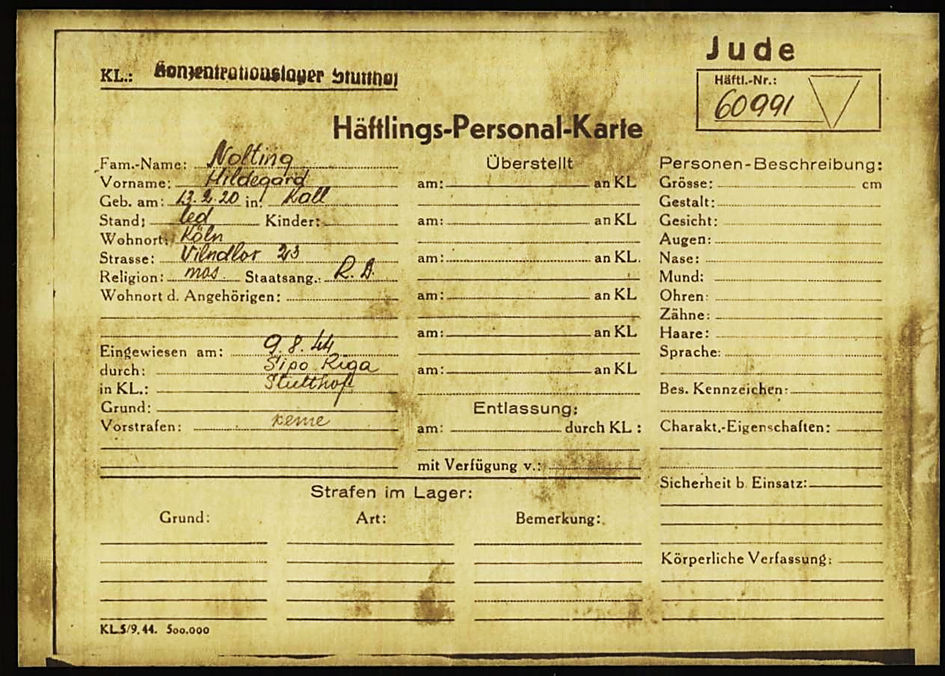 Jude
KL.: Konzentrationslager Stutthof
Häftl.-Nr.:
60991
Häftlings-Personal-Karte
Fam.-Name: Nolting
Vorname: Hildegard
Geb. am: 13.2.20 in: Kall
Stand: led Kinder:
Wohnort: Köln
Strasse: 23
Religion: mos Staatsang.: R.D.
Wohnort d. Angehörigen:
Eingewiesen am: 9.8.44
durch: Sipo Riga
in KL.: Stutthof
Grund:
Vorstrafen: keine
Überstellt
am: an KL
am: an KL
am: an KL.
am: an KL
am: an KL
am: an KL
Entlassung:
am: durch KL:
mit Verfügung v.:
Personen-Beschreibung:
Grösse: cm
Gestalt:
Gesicht:
Augen:
Nase:
Mund:
Ohren:
Zähne:
Haare:
Sprache:
Bes. Kennzeichen:
Charakt.-Eigenschaften:
Sicherheit b. Einsatz:
Körperliche Verfassung:
Strafen im Lager:
Grund: Art: Bemerkung:
KL.5/9.44. 500.000